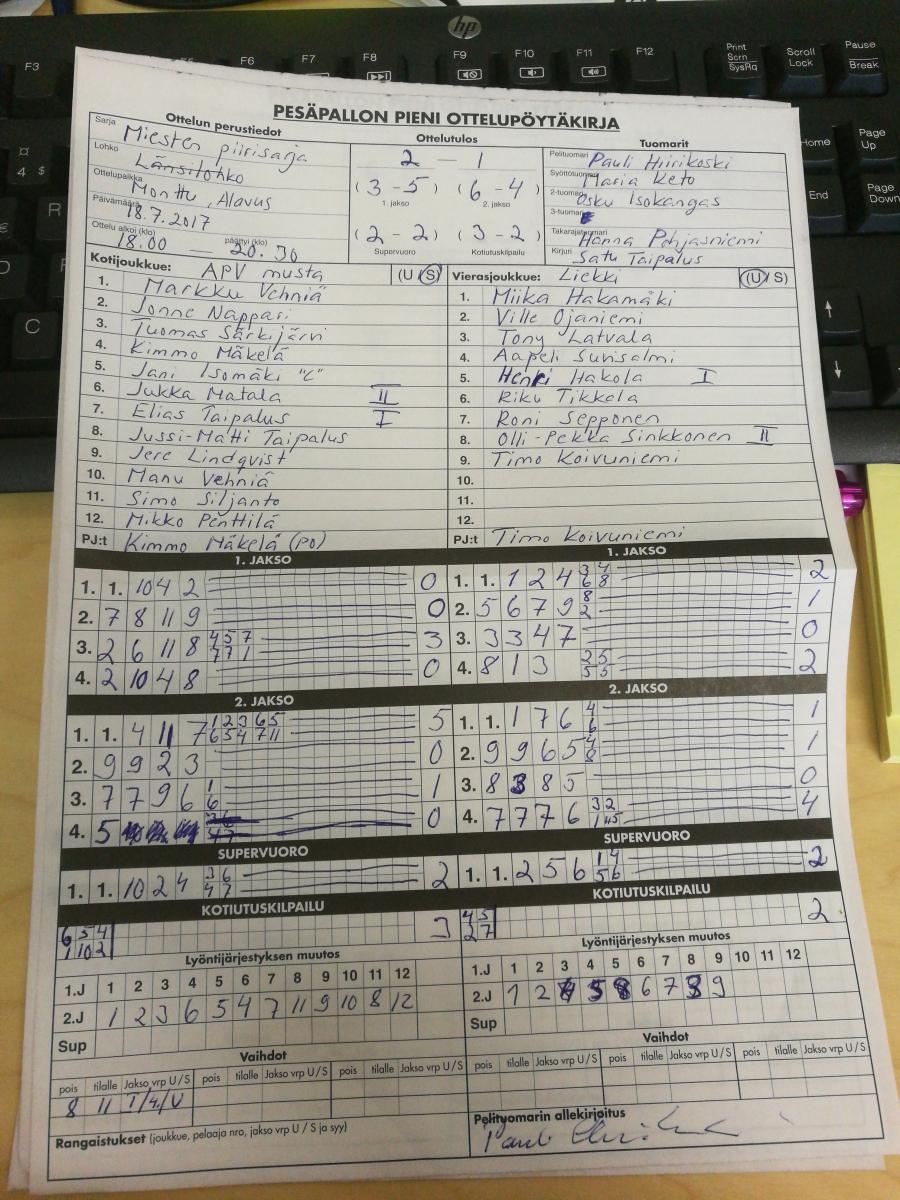 hp
F3 F6 F7 F8 F9 F10 F11 F12 Print Scrn SysRq Scroll Lock Pause Break
Home Page Up
End Page Down
PESÄPALLON PIENI OTTELUPÖYTÄKIRJA
Ottelun perustiedot Ottelutulos Tuomarit
Sarja Miesten piirisarja 2 - 1 Pelituomari Pauli Hiirikoski
Lohko Länsilohko (3-5) (6-4) Syöttötuomari Maria Keto
Ottelupaikka Monttu, Alavus 1. jakso 2. jakso 2-tuomari Osku Isokangas
Päivämäärä 18.7.2017 (2-2) (3-2) 3-tuomari
Ottelu alkoi (klo) 18.00 päättyi (klo) 20.30 Supervuoro Kotiutuskilpailu Takarajatuomari Hanna Pohjasniemi
Kirjuri Satu Taipalus
Kotijoukkue: APV musta (U/S) Vierasjoukkue: Liekki (U/S)
1. Markku Vehniä 1. Miika Hakamäki
2. Jonne Nappari 2. Ville Ojaniemi
3. Tuomas Särkijärvi 3. Tony Latvala
4. Kimmo Mäkelä 4. Aapeli Survisalmi
5. Jani Isomäki "C" 5. Henri Hakola I
6. Jukka Matala II 6. Riku Tikkela
7. Elias Taipalus I 7. Roni Sepponen
8. Jussi-Matti Taipalus 8. Olli-Pekka Sinkkonen II
9. Jere Lindqvist 9. Timo Koivuniemi
10. Manu Vehniä 10.
11. Simo Siljanto 11.
12. Mikko Penttilä 12.
PJ:t Kimmo Mäkelä (PO) PJ:t Timo Koivuniemi
1. JAKSO 1. JAKSO
1. 1. 10 4 2 0 1. 1. 1 2 4 3 4 6 8 2
2. 7 8 11 9 0 2. 5 6 7 9 8 2 1
3. 2 6 11 8 4 5 7 7 7 1 3 3. 3 3 4 7 0
4. 2 10 4 8 0 4. 8 1 3 2 5 5 5 2
2. JAKSO 2. JAKSO
1. 1. 4 11 7 1 2 3 6 5 6 5 4 7 11 5 1. 1. 1 7 6 4 6 1
2. 9 9 2 3 0 2. 9 9 6 5 4 8 1
3. 7 7 9 6 1 6 1 3. 8 3 8 5 0
4. 5 0 4. 7 7 7 6 3 2 1 5 4
SUPERVUORO SUPERVUORO
1. 1. 10 2 4 3 6 4 7 2 1. 1. 2 5 6 1 4 5 6 2
KOTIUTUSKILPAILU KOTIUTUSKILPAILU
6 5 4 3 4 5 2
1 10 2 2 7
Lyöntijärjestyksen muutos Lyöntijärjestyksen muutos
1.J 1 2 3 4 5 6 7 8 9 10 11 12 1.J 1 2 3 4 5 6 7 8 9 10 11 12
2.J 1 2 3 6 5 4 7 11 9 10 8 12 2.J 1 2 4 5 8 6 7 3 9
Sup Sup
Vaihdot Vaihdot
pois tilalle Jakso vrp U/S pois tilalle Jakso vrp U/S pois tilalle Jakso vrp U/S pois tilalle Jakso vrp U/S pois tilalle Jakso vrp U/S pois tilalle Jakso vrp U/S
8 11 I/4./U
Rangaistukset (joukkue, pelaaja nro, jakso vrp U / S ja syy) Pelituomarin allekirjoitus